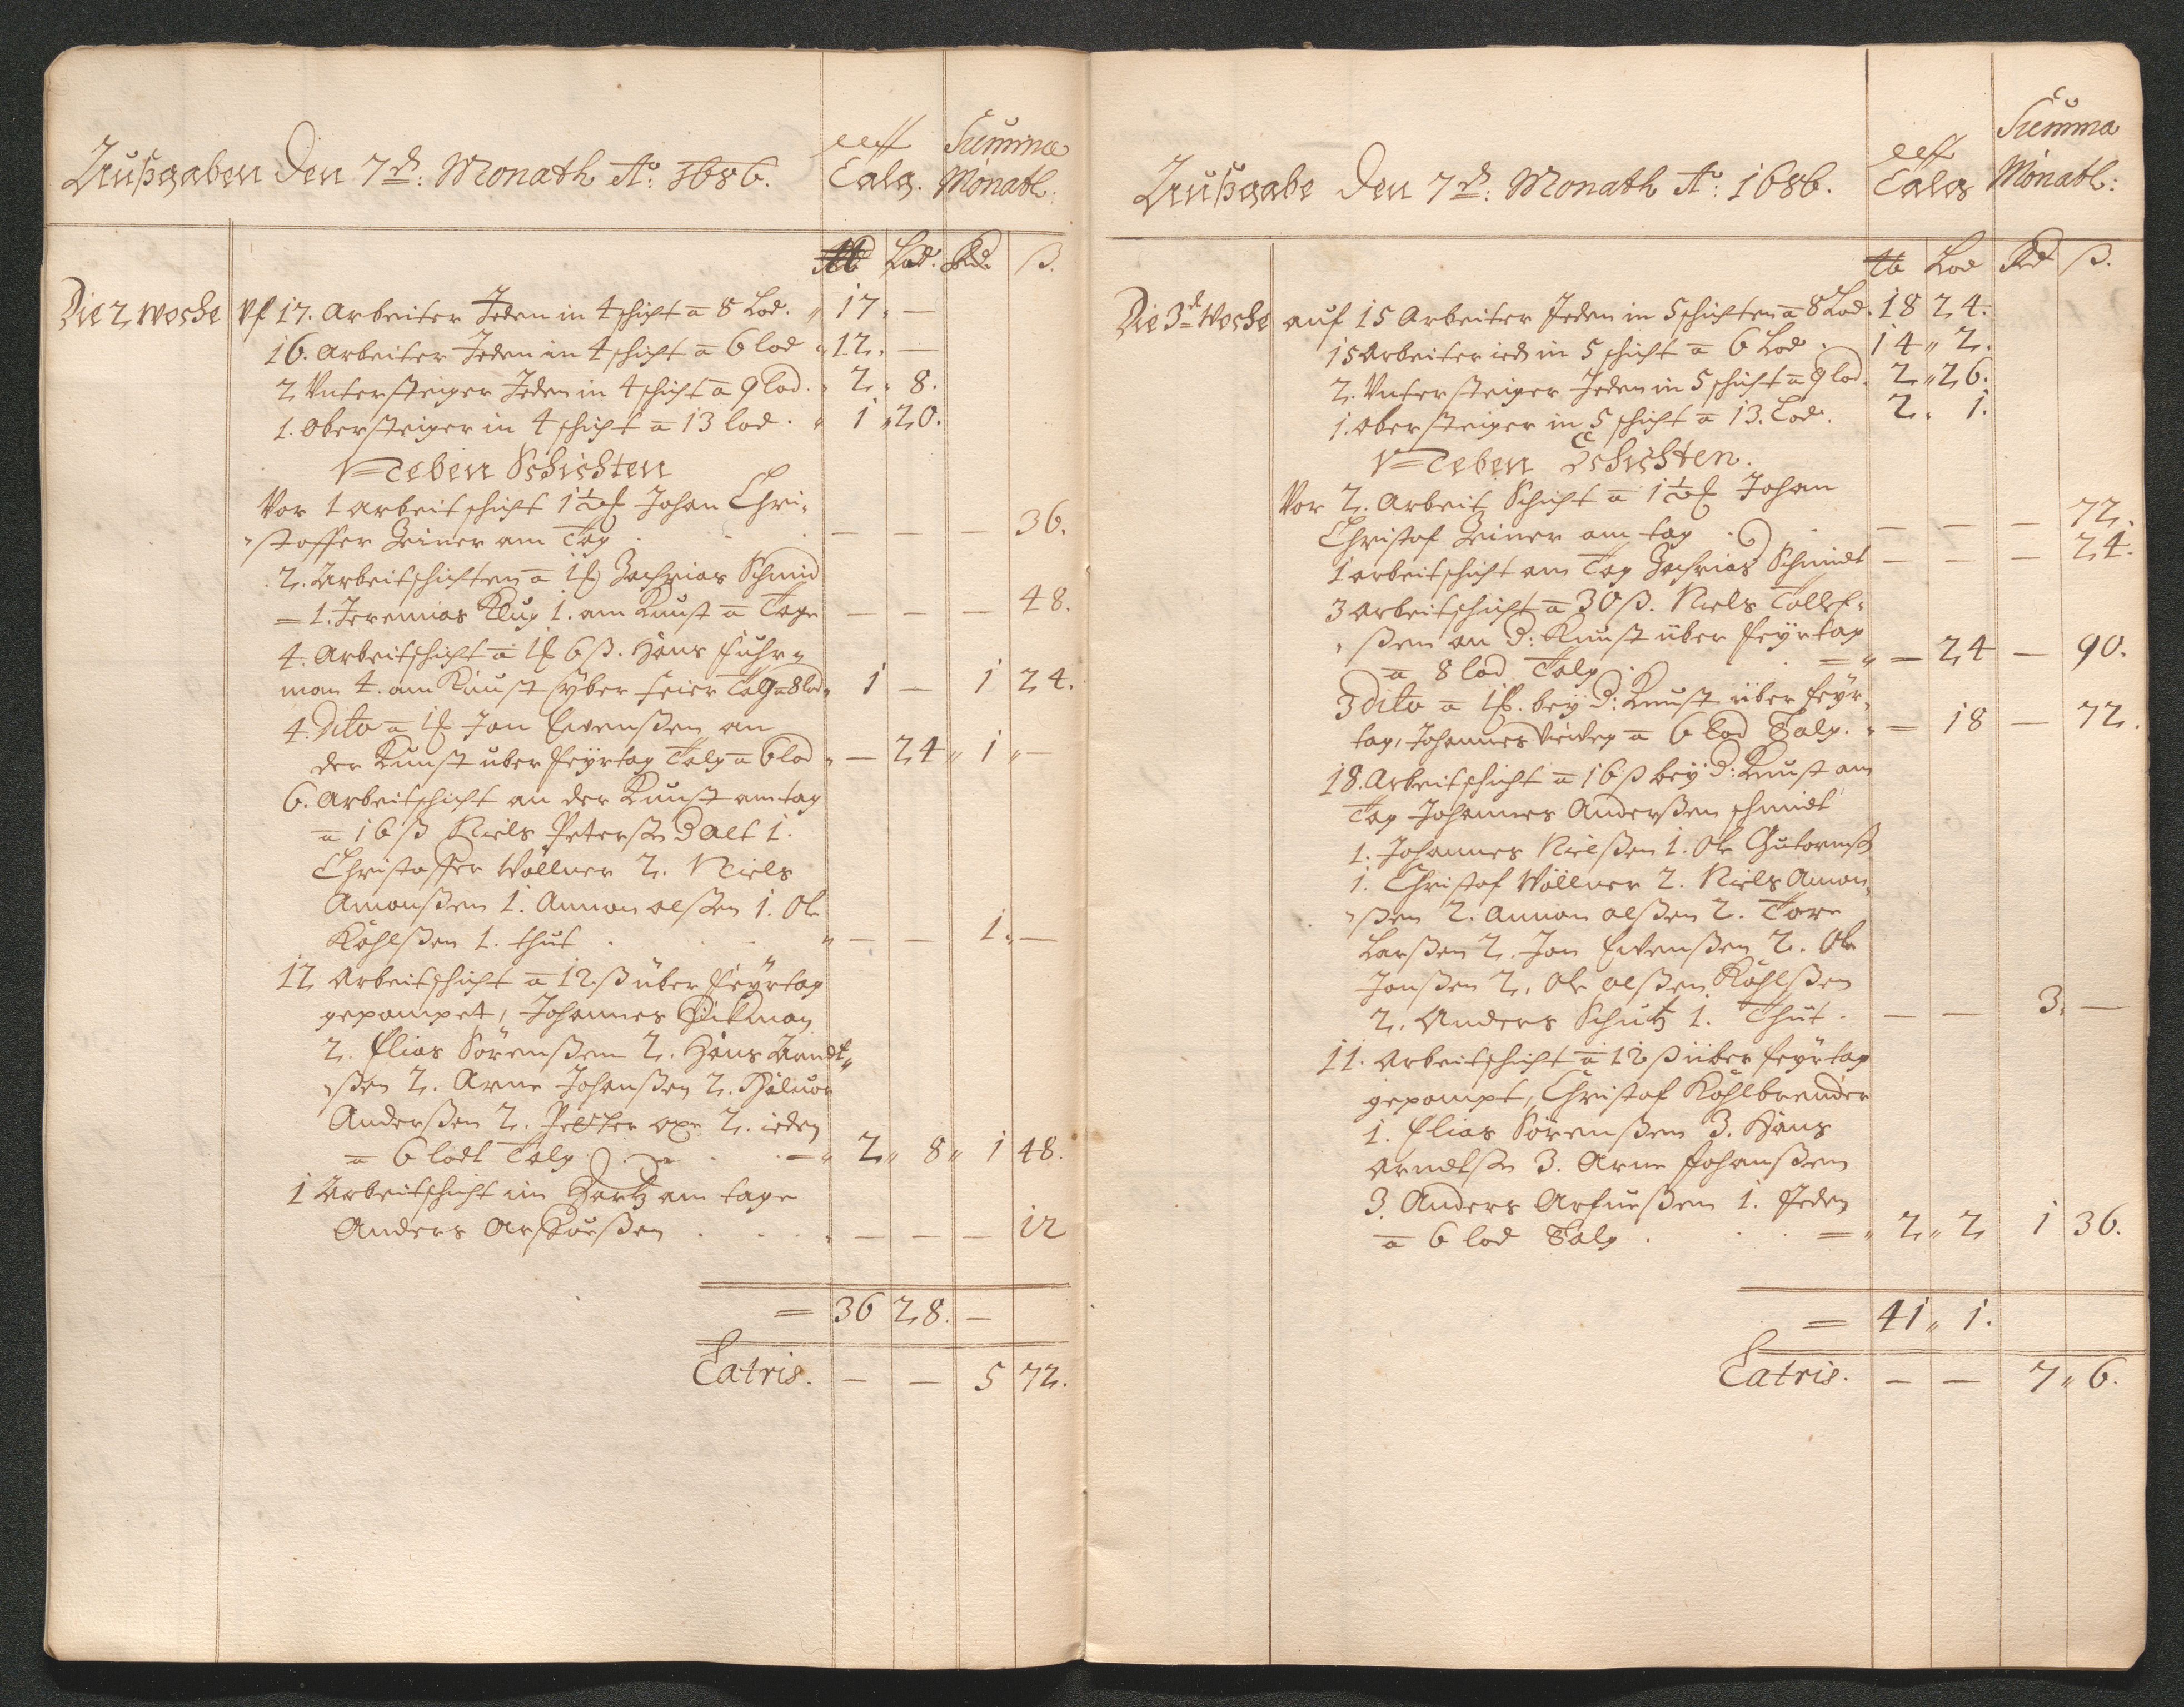 Außgaben Den 7d: Monath Ao: 1686.
auff Talg. Summa Monatl:
lb Lod. Rd ß.
Die 2 Woche
Vf 17. Arbeiter Jeden in 4 schicht a 8 Lod. 17 —
16. Arbeiter Jeden in 4 schicht a 6 lod 12. —
2 Vntersteiger Jeden in 4 schicht a 9 lod. 2. 8.
1. Obersteiger in 4 schicht a 13 lod. 1 20.
Neben Schichten
Vor 1 Arbeit schicht 1½ Johan Chri-
stoffer Zeiner am Tag — — — 36.
2. Arbeitschichten a Zachrias Schmid
1. Jeremias Klug 1. am Kunst a Tage — — — 48.
4. Arbeitschicht a 6 ß. Hans fuhr-
man 4. am Kunst über feier Tag a 8 lod 1 — 1 24.
4. Dito a Jon Evenßen an
der Kunst uber feyrtag Talg a 6 lod — 24 1 —
6. Arbeitschicht an der Kunst am tag
a 16 ß Niels Peterß: 1.
Christoffer Wöllner 2. Niels
Amonßen 1. Amon olßen 1. Ole
Kohlßen 1. thut — — 1. —
12 Arbeitschicht a 12 ß über feyrtag
gepompet, Johannes Dikman
2. Elias Sörenßen 2. Hans Arndt-
ßen 2. Arne Johanßen 2. Haluor
Anderßen 2. Peter oxe 2. ieden
a 6 lodt Talg 2 8 1 48.
1 Arbeitschicht im Hartz am tage
Anders — — — 12
= 36 28. —
Latris. — — 5 72.
Außgabe Den 7d: Monath Ao: 1686.
auff Talg Summa Monatl:
lb Lod Rd ß.
Die 3d Woche
auf 15 Arbeiter Jeden in 5 schichten a 8 Lod. 18 24.
15 Arbeiter ied in 5 schicht a 6 Lod. 14 2.
2. Vntersteiger Jeden in 5 schicht a 9 lod. 2 26.
1. Obersteiger in 5 schicht a 13. Lod. 2. 1.
Neben Schichten.
Vor 2. Arbeit Schicht a 1½ Johan
Christof Zeiner am tag — — — 72.
1 arbeitschicht am Tag Zachrias Schmidt — — — 24.
3 Arbeitschicht a 30 ß. Niels Tollef-
ßen an d: Kunst über feyrtag
a 8 lod Talg — 24 — 90.
3 dito a bey d: Kunst über feyr-
tag, Johannes a 6 Lod Talg. = 18 — 72.
18. Arbeitschicht a 16 ß bey d: Kunst am
Tag Johannes Anderßen schmidt
1. Johannes Nielßen 1. Ole Gutormß
1. Christof Wöllner 2. Niels Amon-
ßen 2. Amon olßen 2. Tore
Larßen 2. Jon Evenßen 2. Ole
Jonßen 2. Ole olßen Kohlßen
2. Anders Schütz 1. Thut. — — 3. —
11. Arbeitschicht a 12 ß über feyrtag
gepompt, Christof Kohlbrender
1. Elias Sörenßen 3. Hans
Arndtß: 3. Arne Johanßen
3. Anders 1. Jeden
a 6 lod Talg 2 2 1 36.
= 41 1.
Latris. — — 7 6.